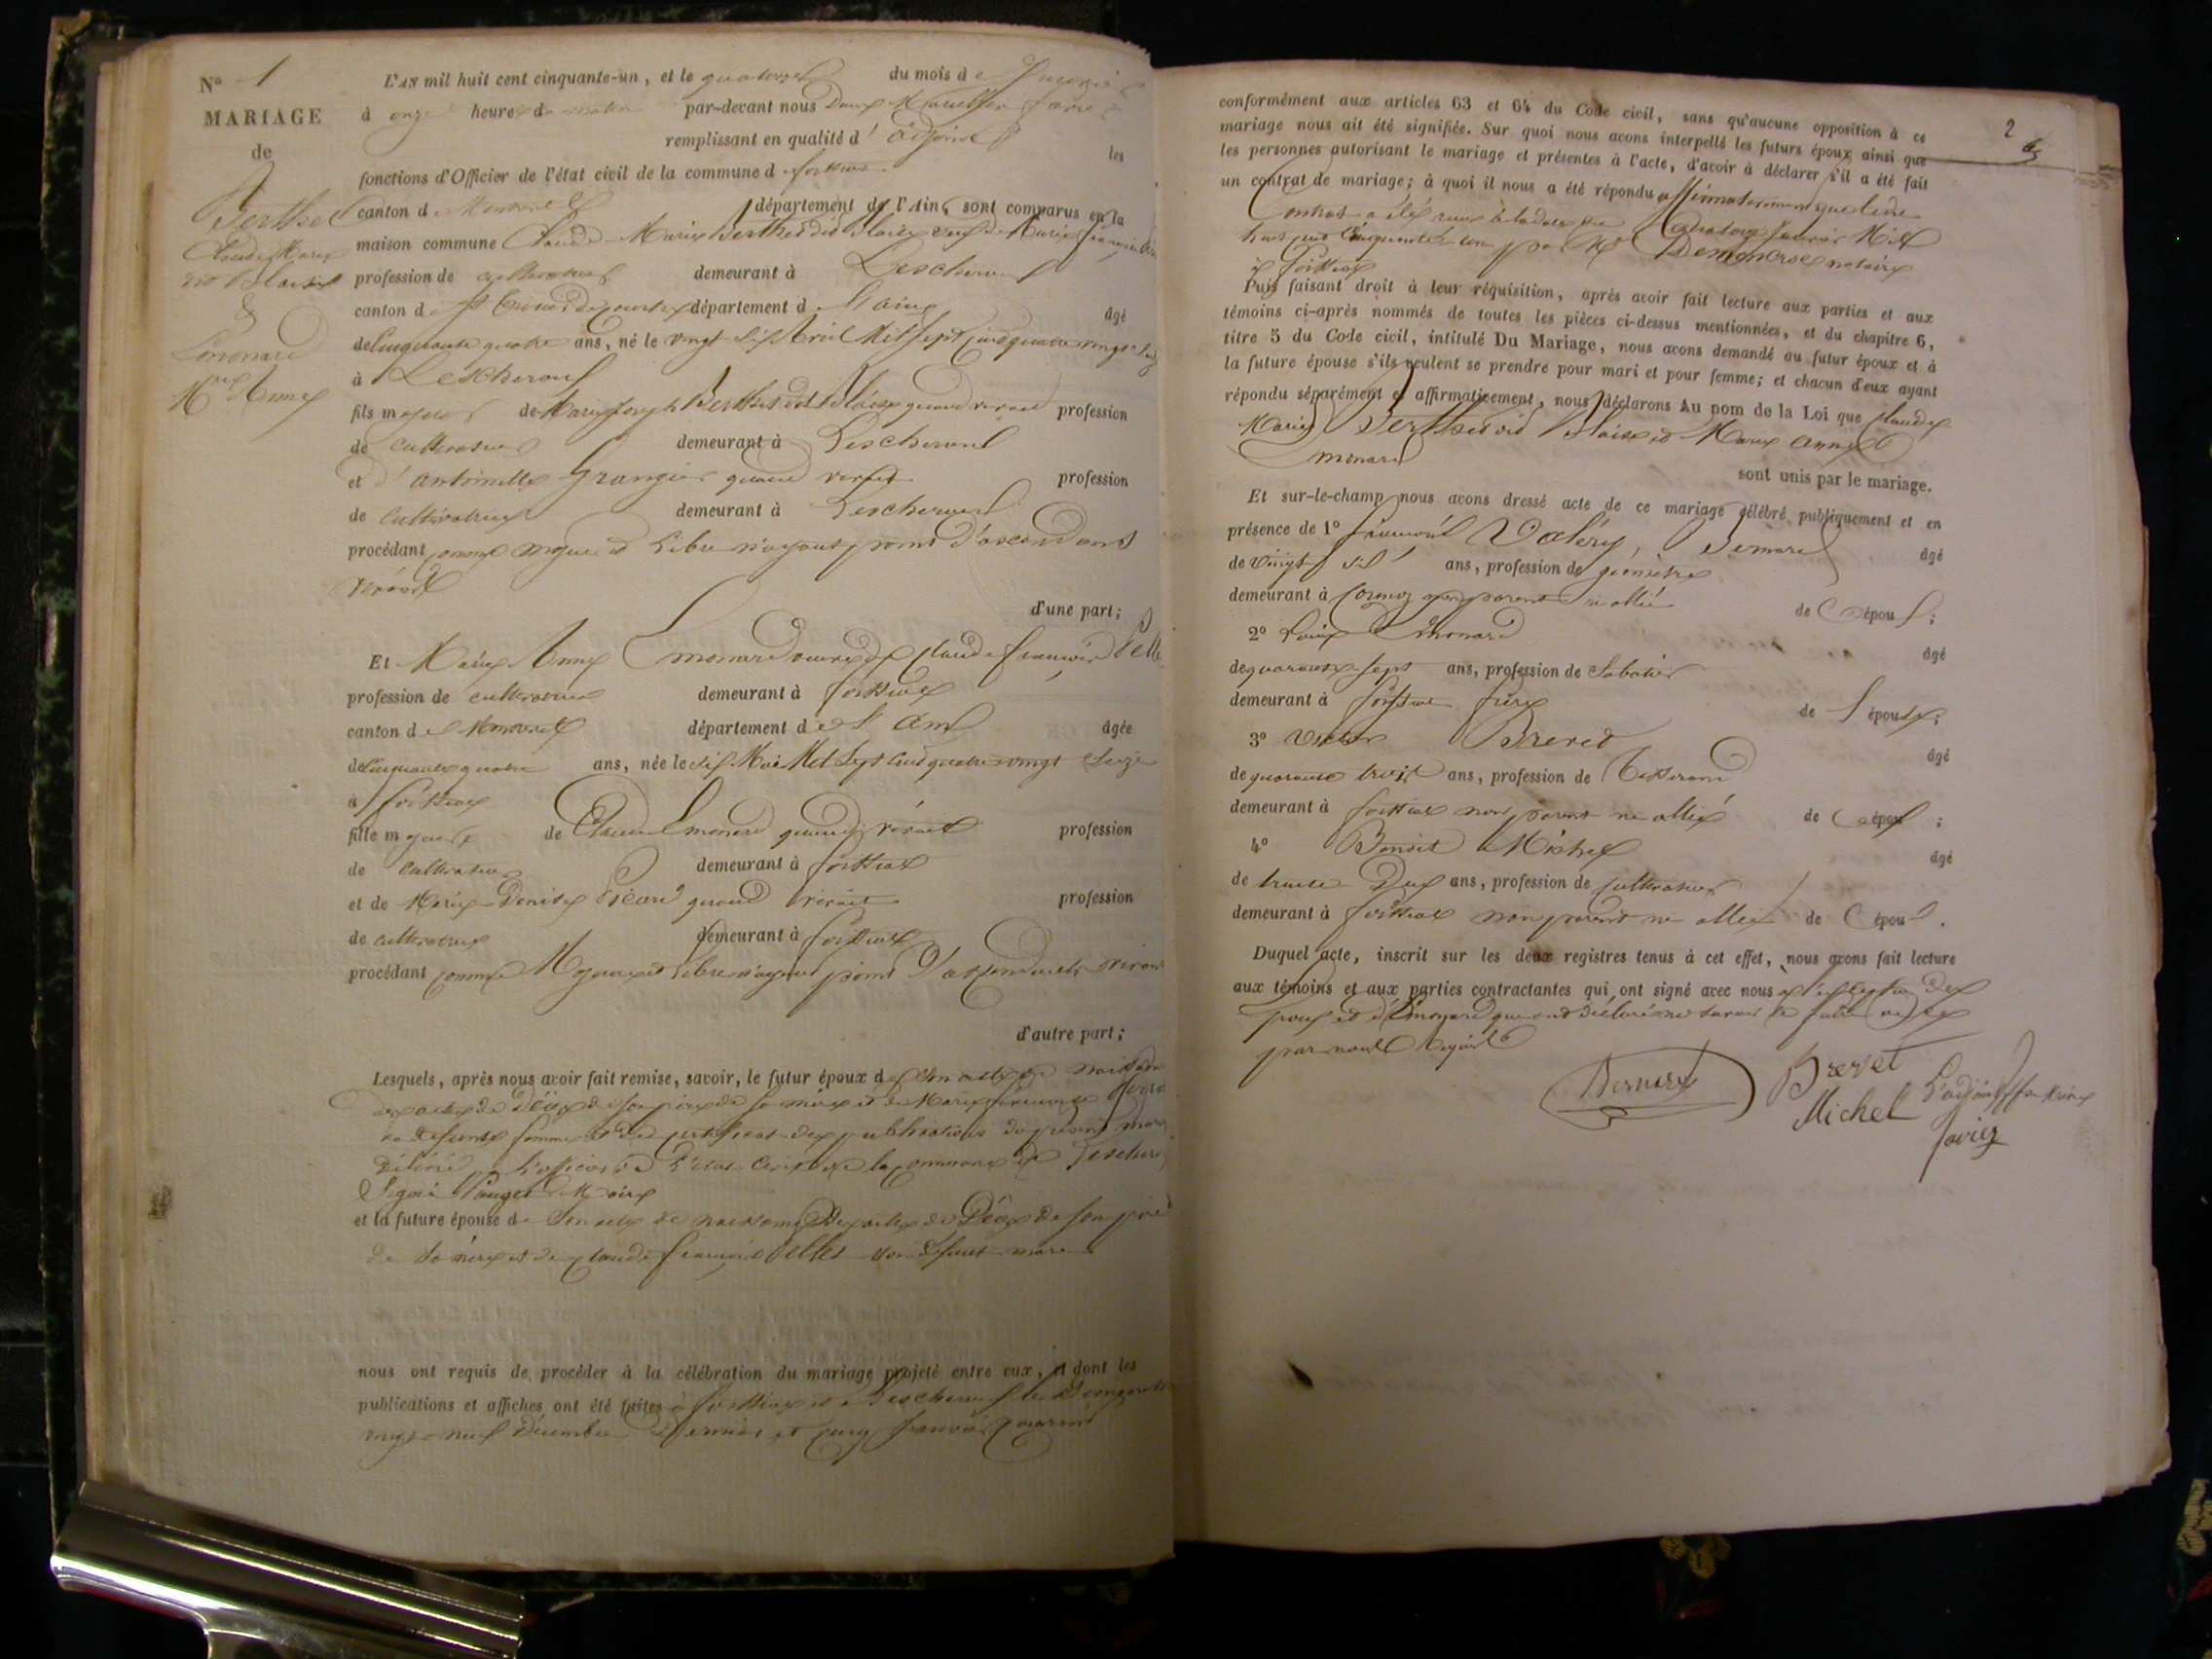 N° 1
MARIAGE
de
Berthet
Claude Marie
dit Blaise
&
Emonard
Mie Anne
L'AN mil huit cent cinquante-un, et le quatorze du mois de Janvier
à onze heures du matin par-devant nous
remplissant en qualité d'adjoint les
fonctions d'Officier de l'état civil de la commune de
canton de département de l'Ain, sont comparus en la
maison commune Claude Marie Berthet dit Blaise veuf de Marie
profession de cultivateur demeurant à Lescheroux
canton de St département de l'ain âgé
de Cinquante quatre ans, né le vingt Mil sept cent quatre vingt
à Lescheroux
fils majeur de Marie Joseph Berthet dit Blaise quand vivait profession
de cultivateur demeurant à Lescheroux
et d'antoinette Grangier quand vivait profession
de cultivatrice demeurant à Lescheroux
procédant comme majeur et libre n'ayant point d'ascendans
vivant
d'une part;
Et Marie Anne Emonard veuve de Claude françois
profession de cultivatrice demeurant à
canton de département de l'ain âgée
de Cinquante quatre ans, née le Mai Mil Sept Cent quatre-vingt Seize
à
fille majeure de Claude Emonard quand vivait profession
de cultivateur demeurant à
et de Marie Denise Picard quand vivait profession
de cultivatrice demeurant à
procédant comme Majeure et libre n'ayant point d'ascendants vivant
d'autre part;
Lesquels, après nous avoir fait remise, savoir, le futur époux de son acte de naissance
des actes de Décès de son père de sa mère et de Marie
sa defunte femme et du certificat des publications du présent
délivré par l'officier de l'état Civil de la commune de
Signé Maire
et la future épouse de Son acte de naissance des actes de Décès de son père
de sa mère et de Claude françois son défunt mari
nous ont requis de procéder à la célébration du mariage projeté entre eux, et dont les
publications et affiches ont été faites à et à Lescheroux les Dimanches
vingt-neuf Décembre dernier et cinq Janvier courant
2
conformément aux articles 63 et 64 du Code civil, sans qu'aucune opposition à ce
mariage nous ait été signifiée. Sur quoi nous avons interpellé les futurs époux ainsi que
les personnes autorisant le mariage et présentes à l'acte, d'avoir à déclarer s'il a été fait
un contrat de mariage; à quoi il nous a été répondu affirmativement que
Contrat a été à la date du Janvier Mil
huit cent Cinquante un par Me notaire
à
Puis faisant droit à leur réquisition, après avoir fait lecture aux parties et aux
témoins ci-après nommés de toutes les pièces ci-dessus mentionnées, et du chapitre 6,
titre 5 du Code civil, intitulé Du Mariage, nous avons demandé au futur époux et à
la future épouse s'ils veulent se prendre pour mari et pour femme; et chacun d'eux ayant
répondu séparément et affirmativement, nous déclarons Au nom de la Loi que Claude
Marie Berthet dit Blaise et Marie anne E
monard
sont unis par le mariage.
Et sur-le-champ nous avons dressé acte de ce mariage célébré publiquement et en
présence de 1° Valéry Bernard âgé
de Vingt ans, profession de géomètre
demeurant à Cormoz non parent ni allié de l'époux;
2° Emonard âgé
de quarante sept ans, profession de Sabotier
demeurant à frère de l'épouse;
3° Victor Brevet âgé
de quarante trois ans, profession de Tisserand
demeurant à non parent ni allié de l'époux;
4° Benoit Michel âgé
de trente Deux ans, profession de Cultivateur
demeurant à non parent ni allié de l'époux.
Duquel acte, inscrit sur les deux registres tenus à cet effet, nous avons fait lecture
aux témoins et aux parties contractantes qui ont signé avec nous à l'exception des
époux et d'Emonard qui ont déclaré ne savoir le faire
par nous requis
Bernard Brevet
Michel L'adjoint